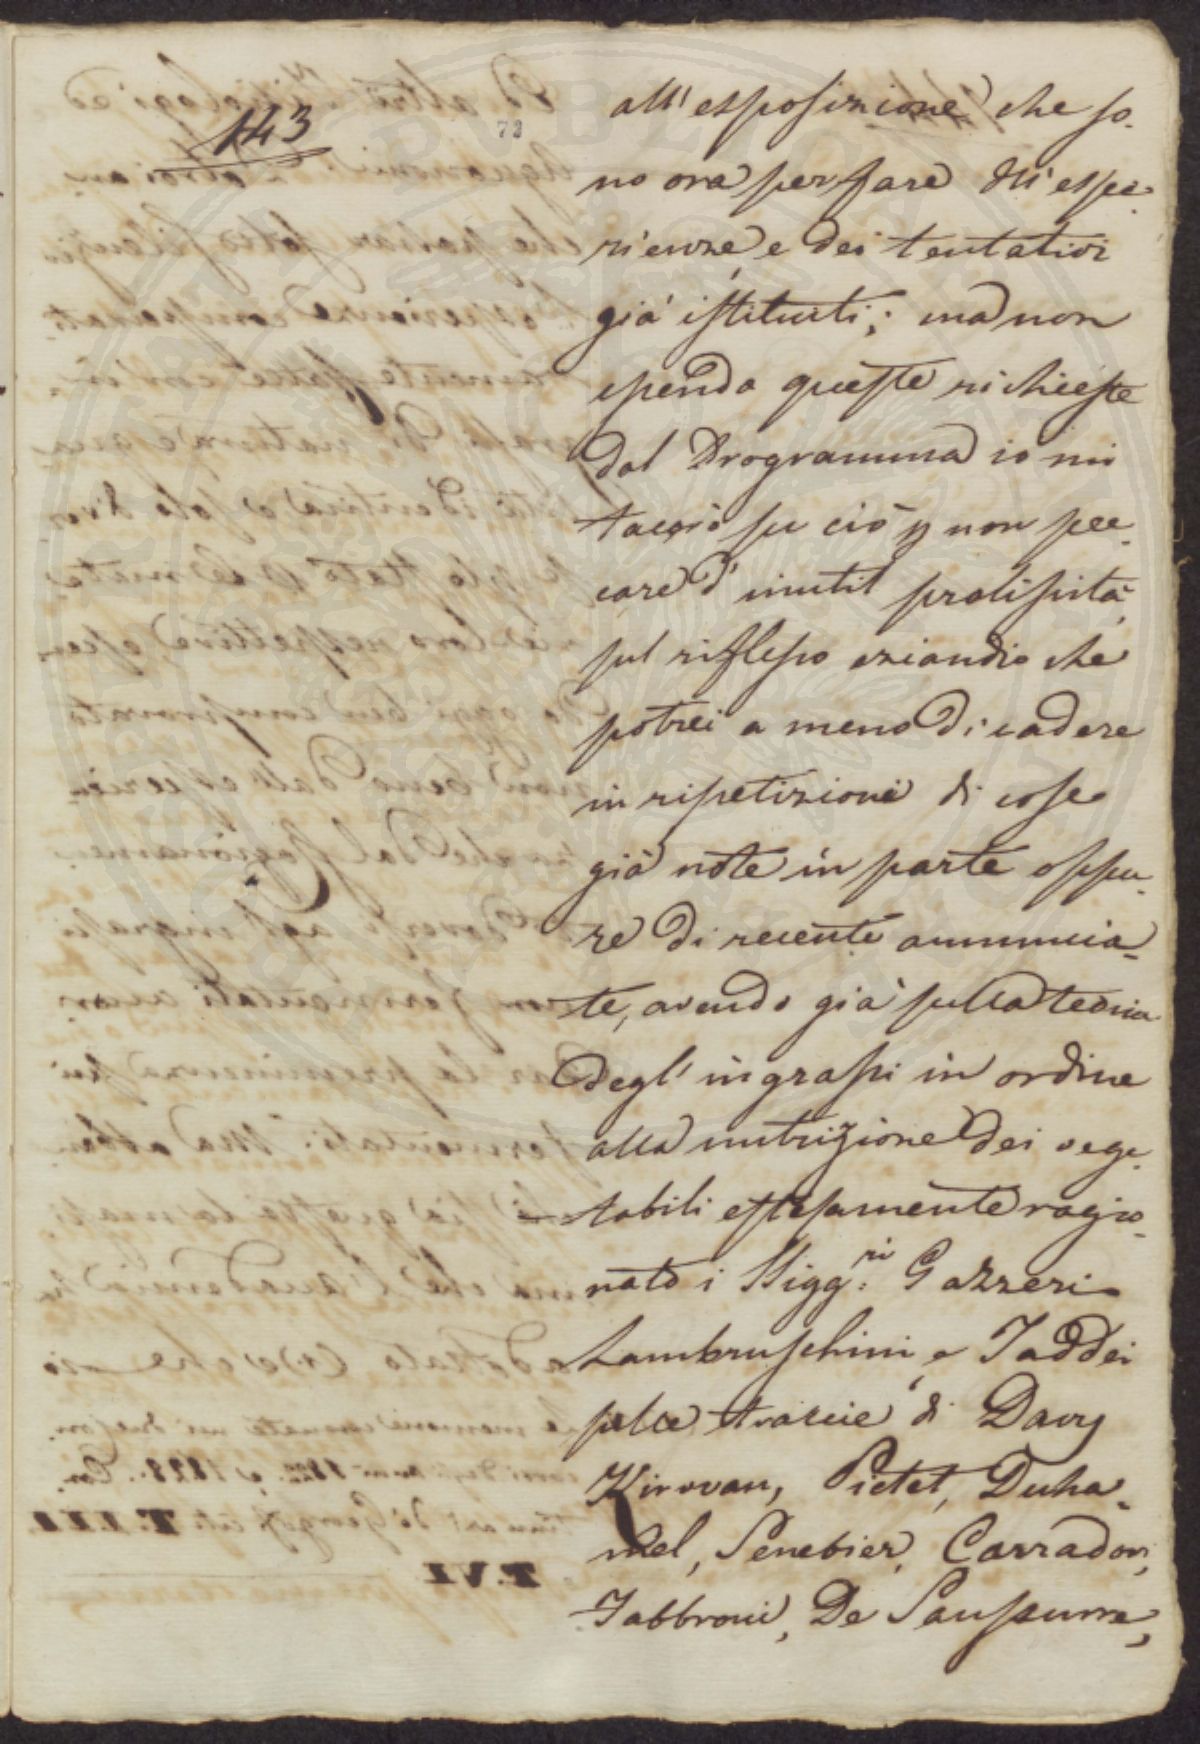 143
72
all' esposizione che so-
no ora per fare dell' espe-
rienze, e dei tentativi
già istituiti; ma non
essendo queste richieste
dal Programma io mi
taccio su ciò p non pec-
care d' inutil prolissità,
sul riflesso eziandio che
potrei a meno di cadere
in ripetizioni di cose
già note in parte oppu-
re di recente annuncia-
te, avendo già sulla teoria
degl' ingrassi in ordine
alla nutrizione dei vege-
tabili estesamente ragio-
nato i Sigg.ri Gazzeri
Lambruschini, e Taddei
sulle traccie di Davy
Kirovan, Pictet, Duha-
mel, Senebier, Carradori,
Fabbroni, De Saussurre,